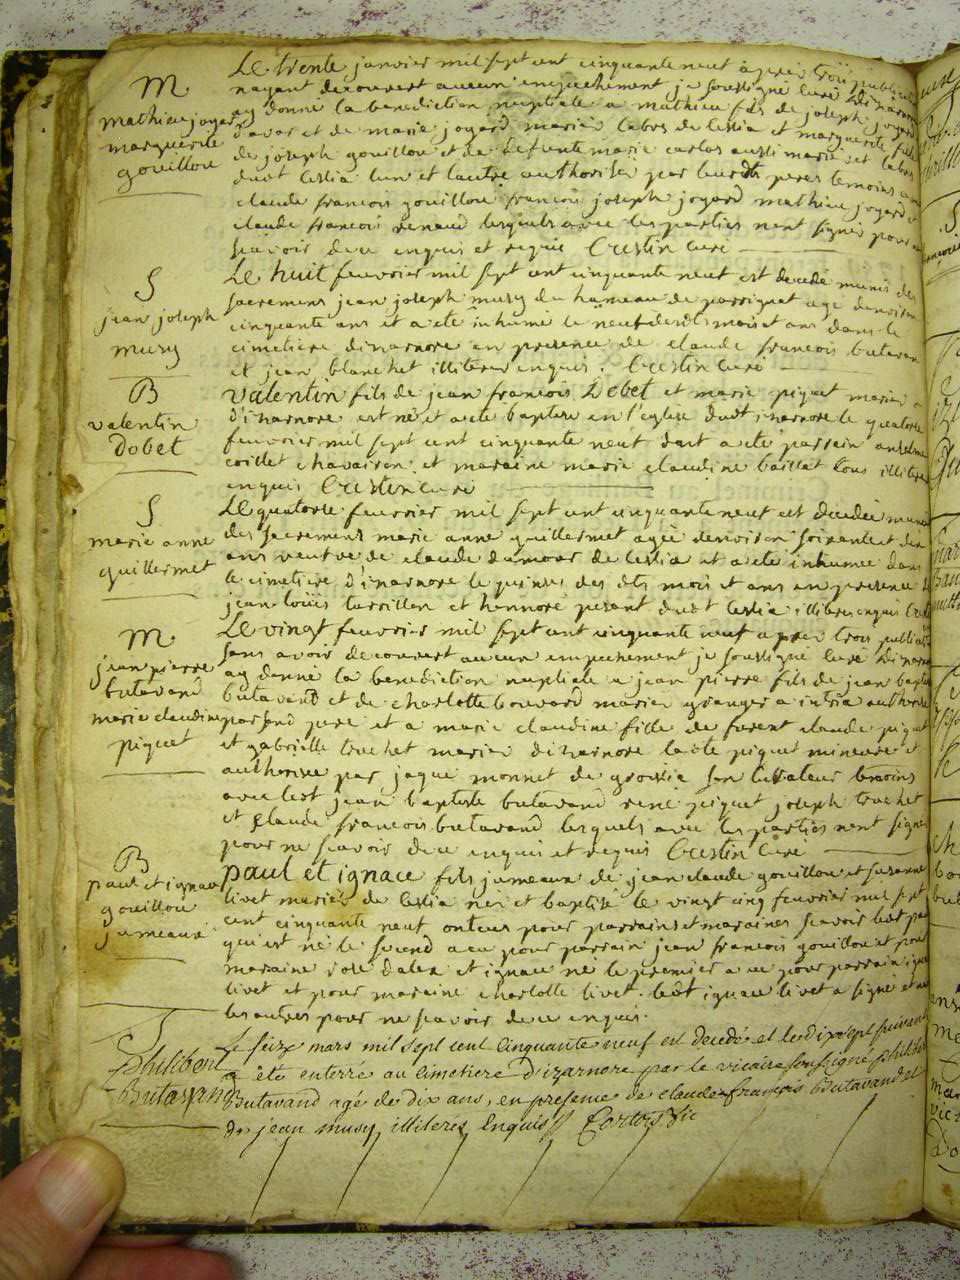 M
mathieu joyard
marguerite
gouillou
Le trente janvier mil sept cent cinquante neuf après trois
nayant decouvert aucun empechement je soussigné curé dizarnore
ay donné la benediction nuptiale a mathieu fils de joseph joyard
et de marie joyard mariés labrs de lestia et marguerite fille
de joseph gouillou et de deffunte marie carlos aussi mariés et labrs
dudt lestia lun et lautre authorisés par leurdts peres temoins
claude francois gouillou francois joseph joyard mathieu joyard
claude francois renaud lesquels avec les parties nont signés pour
scavoir de ce enquis et requis Crestin curé
S
jean joseph
musy
Le huit feuvrier mil sept cent cinquante neuf est decedé munis des
sacremens jean joseph musy du hameau de agé denviron
cinquante ans et a eté inhumé le neuf desdts mois et ans dans le
cimetiere dizarnore en presence de claude francois butavan
et jean blanchet illiterés enquis. Crestin curé
B
valentin
Dobet
Valentin fils de jean francois Dobet et marie piquet mariés
d'izarnore est né et a eté baptisé en l'eglise dudt izarnore le quatorse
feuvrier mil sept cent cinquante neuf dont a eté parrain anselme
coillet et maraine marie claudine baillat tous illiteres
enquis Crestin curé
S
marie anne
guillermet
Le quatorse feuvrier mil sept cent cinquante neuf est decedée munie
des sacremens marie anne guillermet agée denviron soixante et dix
ans veufve de claude damour de lestia et a eté inhumée dans
le cimetiere d'izarnore le quinse des dts mois et ans en presence
jean loüis et honnoré dudt lestia illiteres enquis
M
jean pierre
butavand
marie claudine
piquet
Le vingt feuvrier mil sept cent cinquante neuf apres trois
sans avoir decouvert aucun empechement je soussigné curé dizarnore
ay donné la benediction nuptiale a jean pierre fils de jean baptiste
butavand et de charlotte bouvard mariés granger a intria authorisé
par sond pere et a marie claudine fille de furent claude piquet
et gabrielle truchet mariés dizarnore ladte piquet mineure et
authorisée par jaque monnet de groissia son tutrateur temoins
avec led jean baptiste butavand rene piquet joseph truchet
et claude francois butavand lesquels avec les parties nont signés
pour ne scavoir de ce enquis et requis Crestin Curé
B
paul et ignace
gouillou
jumeaux
Paul et ignace fils jumeaux de jean claude gouillou et susanne
livet mariés de lestia nés et baptisé le vingt cinq feuvrier mil sept
cent cinquante neuf ont eus pour parrains et maraines scavoir ledt paul
qui est né le second a eu pour parrain jean francois gouillou et pour
maraine rose dalex et ignace né le premier a eu pour parrain ignace
livet et pour maraine charlotte livet. ledt ignace livet a signé et non
les autres pour ne scavoir de ce enquis.
S
Philibert
Butavand
Le seize mars mil sept cent cinquante neuf est decedé et le dixsept suivant
a été enterré au cimetiere d'izarnore par le vicaire soussigné philibert
Butavand agé de dix ans, en presence de claude françois Butavand et
de jean musy illiterés Enquis